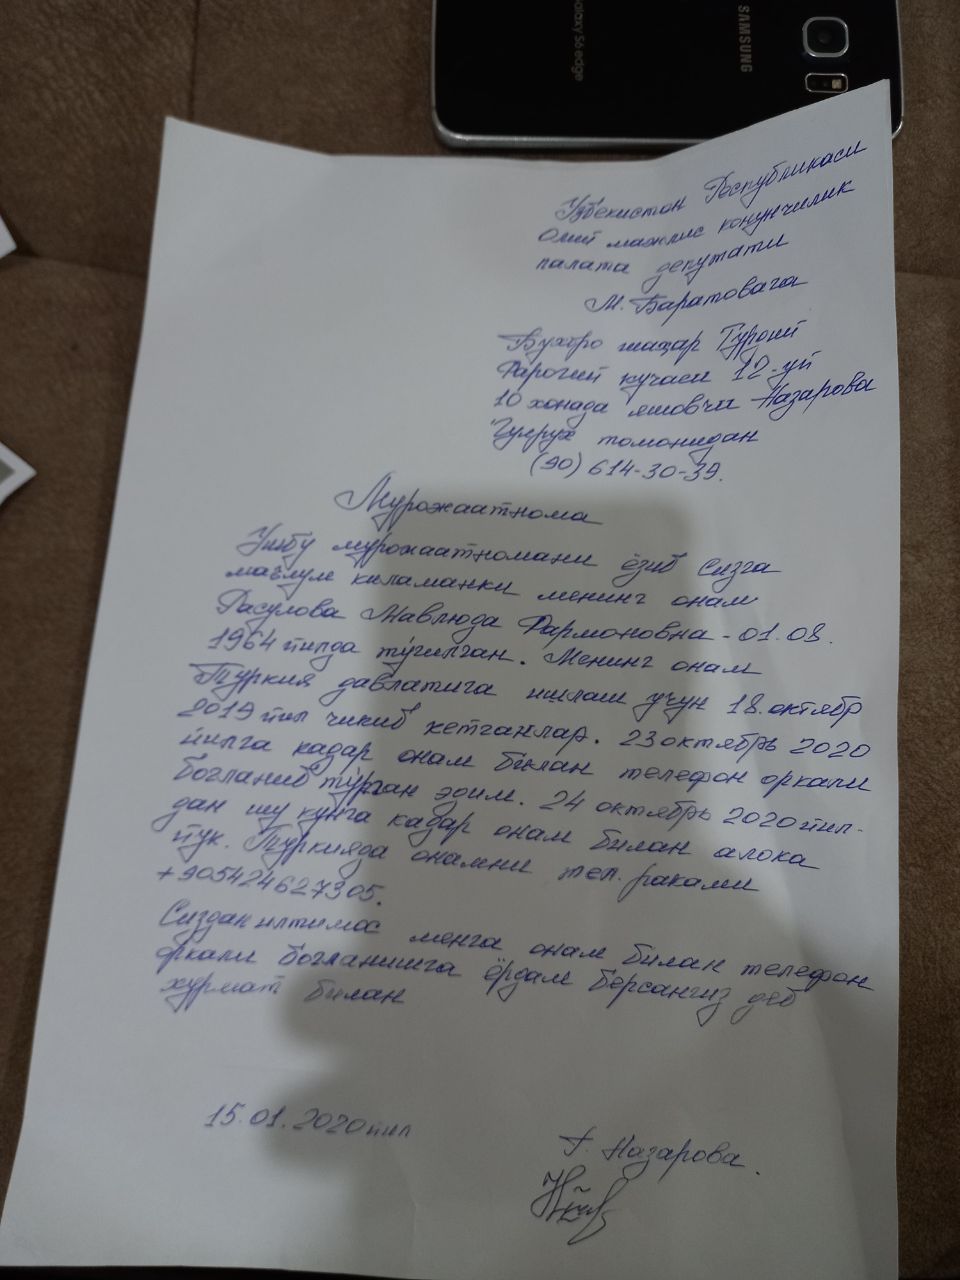 SAMSUNG
Galaxy S6 edge
Ўзбекистон Республикаси
Олий мажлис конунчилик
палата депутати
М. Баратовага
Бухоро шаҳар Гуроий
Фарогий кучаси 12-уй
10 хонада яшовчи Назарова
Гулрух томонидан
(90) 614-30-39.
Мурожаатнома
Ушбу мурожаатномани ёзиб сизга
маълум киламанки менинг онам
Расулова Мавлюда Фармоновна - 01.08.
1964 йилда туғилган. Менинг онам
Туркия давлатига ишлаш учун 18.октябр
2019 йил чикиб кетганлар. 23 октябрь 2020
йилга кадар онам билан телефон оркали
богланиб турган эдим. 24 октябрь 2020 йил-
дан шу кунга кадар онам билан алока
йук. Туркияда онамни тел. раками
+905424627305.
Сиздан илтимос менга онам билан телефон
оркали богланишга ёрдам берсангиз деб
хурмат билан
15.01.2020 йил
Г. Назарова.